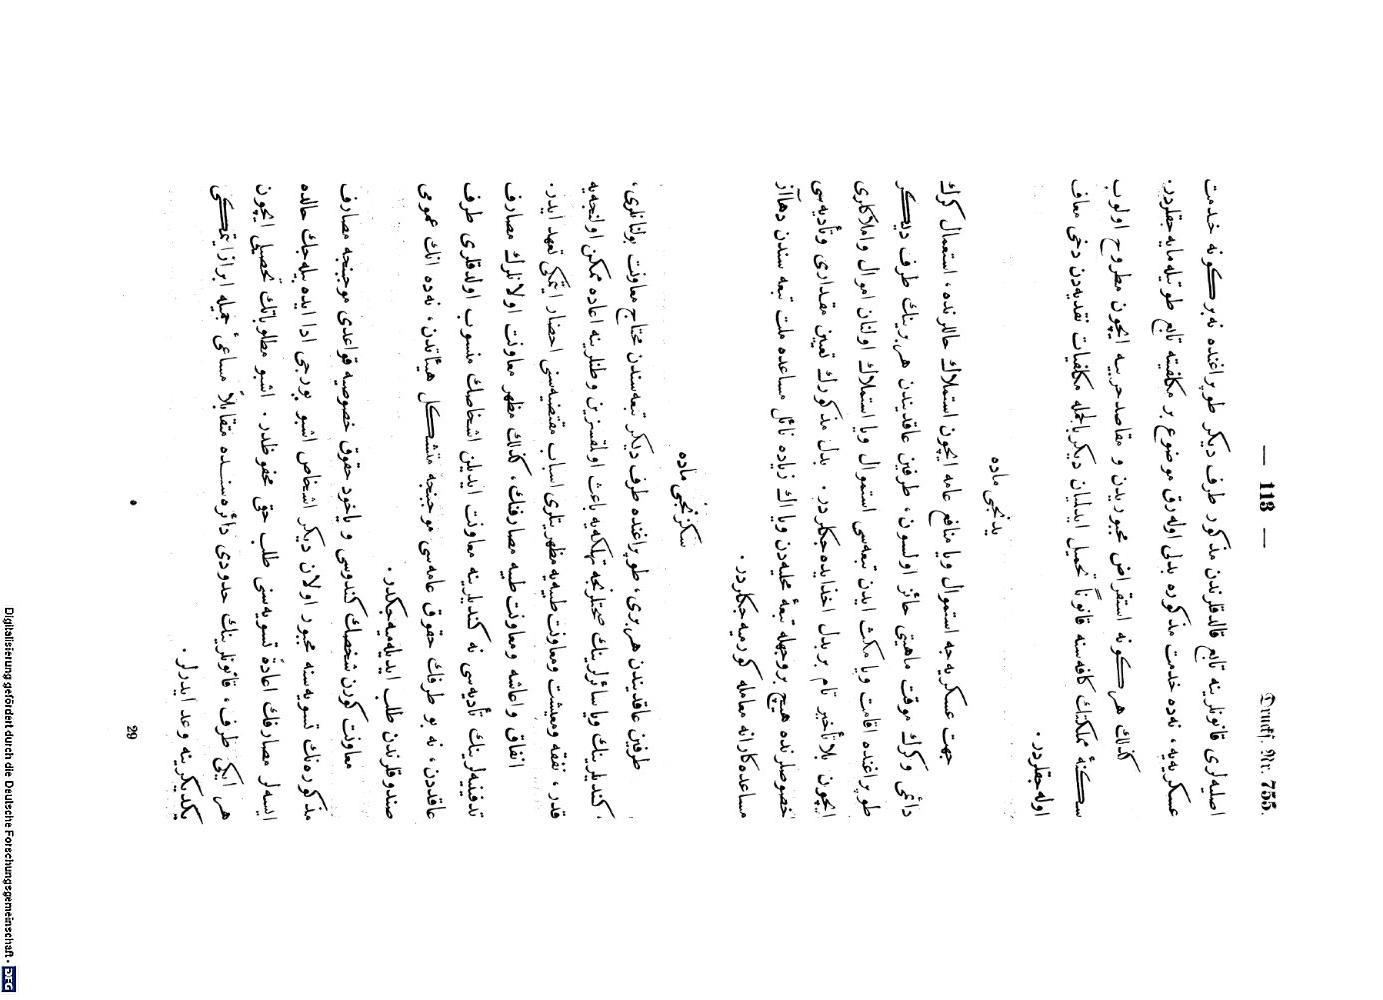 — 113 —
Drucks. Nr. 755.
اصلیه‌لری قانونلرینه تابع قالدقلرندن مذکور طرف دیکر طوپراغنده نه بر کونه خدمت
عسکریه‌یه ، نه‌ده خدمت مذکوره بدلی اوله‌رق موضوع بر مکلفیته تابع طوتیله‌مایه‌جقلردر.
کذلك هر کونه استقراض مجبوریدن و مقاصد حربیه ایچون مطروح اولوب
سکنهٔ مملکتك کافه‌سنه قانوناً تحمیل ایدلمیان دیکر بالجمله مکلفیات نقدیه‌دن دخی معاف
اوله‌جقلردر.
یدنجی ماده
جهت عسکریه‌جه استعمال ویا منافع عامه ایچون استملاك حاللرنده ، استعمال کرك
دائمی و کرك موقت ماهیتی حائز اولسون ، طرفین عاقدیندن هر برینك طرف دیکر
طوپراغنده اقامت ویا مکث ایدن تبعه‌سی استعمال ویا استملاك اولنان اموال واملاکلری
ایچون بلا تأخیر تام بر بدل اخذ ایده‌جکلردر . بدل مذکورك تعیین مقداری وتأدیه‌سی
خصوصلرنده هیچ بر وجهله تبعهٔ محلیه‌دن ویا اك زیاده نائل مساعده ملت تبعه سندن دها آز
مساعده‌کارانه معامله کورمیه‌جکلردر .
سکزنجی ماده
طرفین عاقدیندن هر بری ، طوپراغنده طرف دیکر تبعه‌سندن محتاج معاونت بولنانلری،
کندیلرینك ویا سائرلرینك صحتلرنجه تهلکه‌یه باعث اولقسزین وطنلرینه اعاده ممکن اولنجه‌یه
قدر ، نفقه ومعیشت ومعاونت طبیه‌یه مظهریتلری اسباب مقتضیه‌سنی احضار ایتمکی تعهد ایدر.
انفاق و اعاشه ومعاونت طبیه مصارفنك ، کذلك مظهر معاونت اولانلرك مصارف
تدفینیه‌لرینك تأدیه‌سی نه کندیلرینه معاونت ایدیلن اشخاصك منسوب اولدقلری طرف
عاقددن ، نه بو طرفك حقوق عامه‌سی موجبنجه متشکل هیأتدن ، نه‌ده انك عمومی
صندوقلرندن طلب ایدیله‌میه‌جکدر .
معاونت کورن شخصك کندوسی و یاخود حقوق خصوصیه قواعدی موجبنجه مصارف
مذکوره‌نك تسویه‌سنه مجبور اولان دیکر اشخاص اشبو بورجی ادا ایده بیله‌جك حالده
ایسه‌لر مصارفك اعادةً تسویه‌سنی طلب حق محفوظدر . اشبو مطلوباتك تحصیلی ایچون
هر ایکی طرف ، قانونلرینك حدودی دائره‌سنده متقابلاً مساعیٔ جمیله ابراز ایتمکی
یکدیکرینه وعد ایدرلر .
29
Digitalisierung gefördert durch die Deutsche Forschungsgemeinschaft - DFG